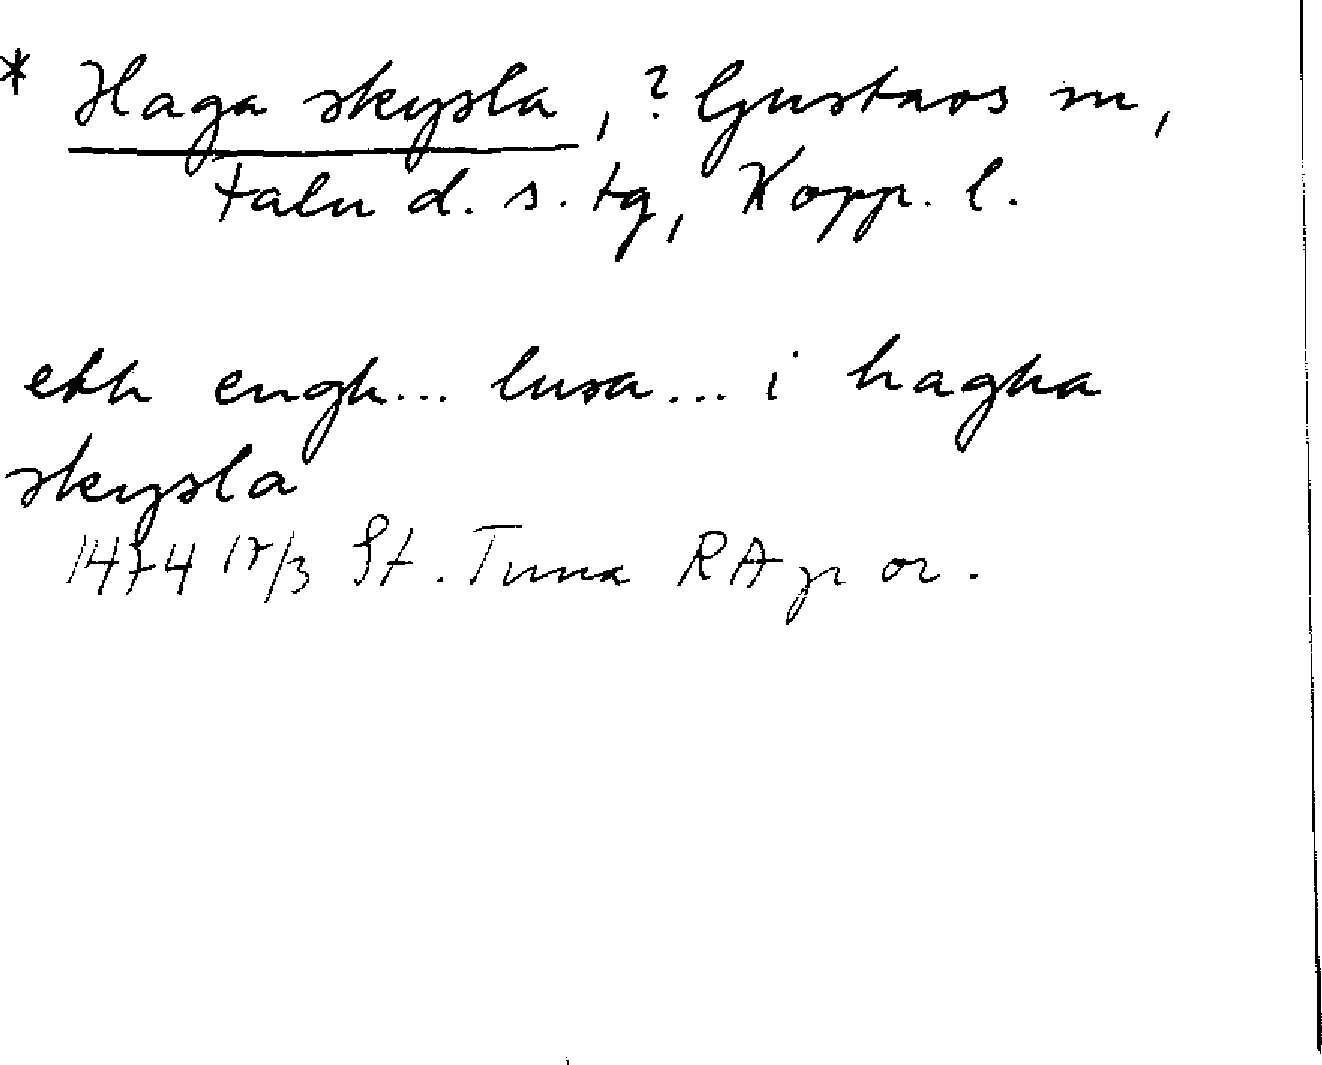 * Haga skysla, ? Gustavs sn,
Falu d. s. tg, Kopp. l.
ekh engh... lusa... i hagha
skysla
1474 17/3 St. Tuna RAp or.